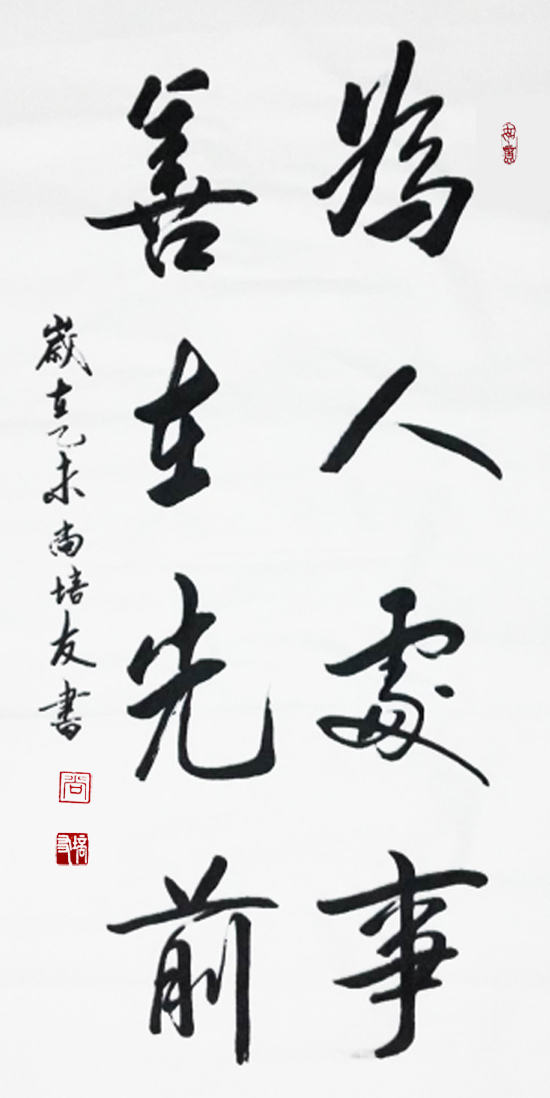 為人處事
善在先前
歲在乙未尚培友書
尚